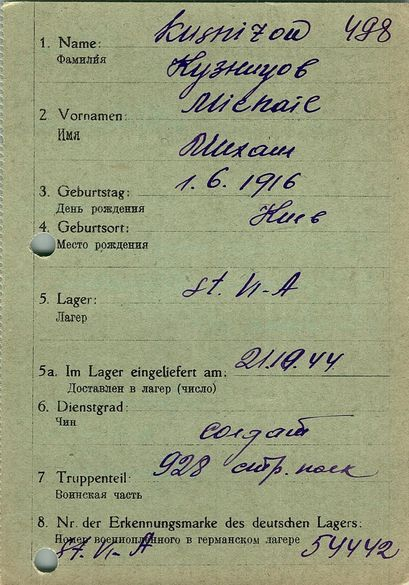 Kusnizow 498
1. Name:
Фамилия
Кузницов
Michail
2 Vornamen:
Имя
Михаил
3. Geburtstag: 1.6.1916
День рождения
4. Geburtsort: Киев
Место рождения
5. Lager: St. VI-A
Лагер
5a. Im Lager eingeliefert am: 21.10.44
Доставлен в лагер (число)
6. Dienstgrad:
Чин
солдат
928 стр. полк
7 Truppenteil:
Воинская часть
8. Nr. der Erkennungsmarke des deutschen Lagers:
Номер военнопленного в германском лагере
St. VI-A 54442